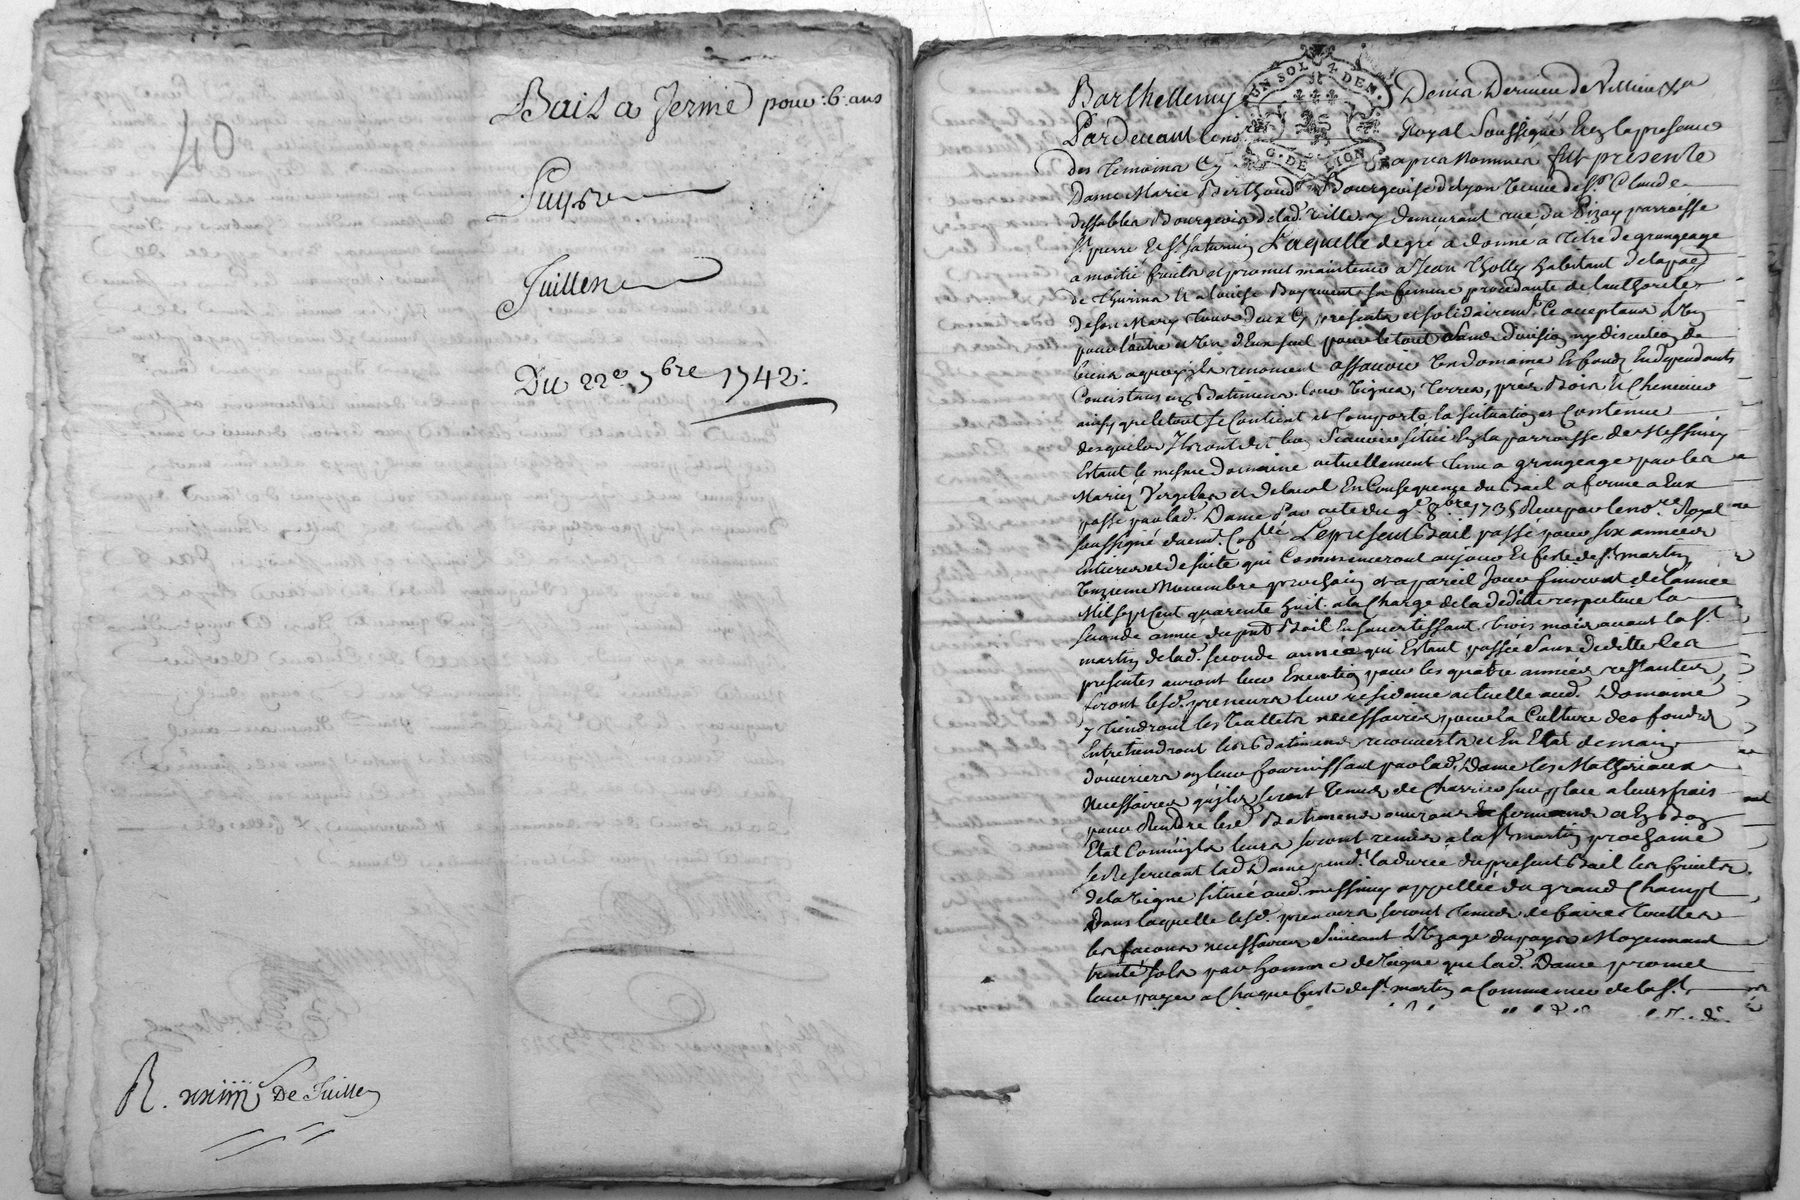 40
Bail a ferme pour 6 ans
Puys
Juillen
Du 22e 7bre 1742
R. xxiiii De Juillen
UN SOL 4 DEN.
G. DE LION
Barthellemy Denis Dervieu de Villieu
Pardevant Royal Soussigné Et en la presence
des Temoins Cy apres Nommés fut presente
Dame Marie Berthaud Bourgeoise de Lyon Veuve de Sr. Claude
dessables Bourgeois de lad. Ville y demeurant rue du Pizay parroisse
St. pierre et St. Saturnin Laquelle de gré a donné a Titre de grangeage
a moitié fruits et promet maintenir a Jean Tholly habitant de la
de Thurins Et a Louise sa femme procedante de l'authorité
de son Mary Tous deux Cy presents et solidairement acceptans L'un
pour l'autre et L'un d'Eux seul pour le tout sans division ny discution de
biens a quoy ils renoncent assavoir Un domaine Et fonds En dependants
Consistans en Batiments Cour Vignes, Terres, prés Bois Et Chenevier
ainsy que le tout se Contient et Comporte la situation et Contenue
desquels Ils ont dit bien Scavoir situé En la parroisse de Messimy
Estant le mesme domaine actuellement Tenu a grangeage par les
Mariés Verget et delaval En Consequence du Bail a ferme a Eux
passé par lad. Dame Par acte du 9e 8bre 1735 Receu par le nore. Royal
soussigné duemt. Collé Le present Bail passé pour six années
Entieres et de suitte qui Commenceront au jour Et feste de St. martin
Unzieme Novembre prochain et a pareil Jour finiront de l'année
Mil sept Cent quarente huit a la Charge de la deditte respective la
seconde année du pnt Bail En s'avertissant trois mois avant la St.
martin de lad. seconde année qui Estant passée sans deditte les
presentes auront leur Execution pour les quatre années restantes
feront lesd. preneurs leur residence actuelle aud. Domaine
y tiendront les Vallets necessaires pour la Culture des fonds
Entretiendront les Batiments recouverts et En Etat de main
d'ouvriers En leur fournissant par lad. Dame les Matheriaux
Necessaires qu'ils seront Tenus de Charrier sur place a leurs frais
pour Rendre lesd. Batiments fermants et En Bon
Etat Comm'ils leurs seront remis a la St. martin prochaine
se Reservant lad. Dame pendt. la durée du present Bail les fruits
de la Vigne située aud. messimy appellée du grand Champt
Dans laquelle lesd. preneurs seront Tenus de faire Touttes
les facons necessaires Suivant L'Uzage du pays Moyennant
trente sols par homme de Vigne que lad. Dame promet
leur payer a Chaque feste de St. martin a Commencer de la St.